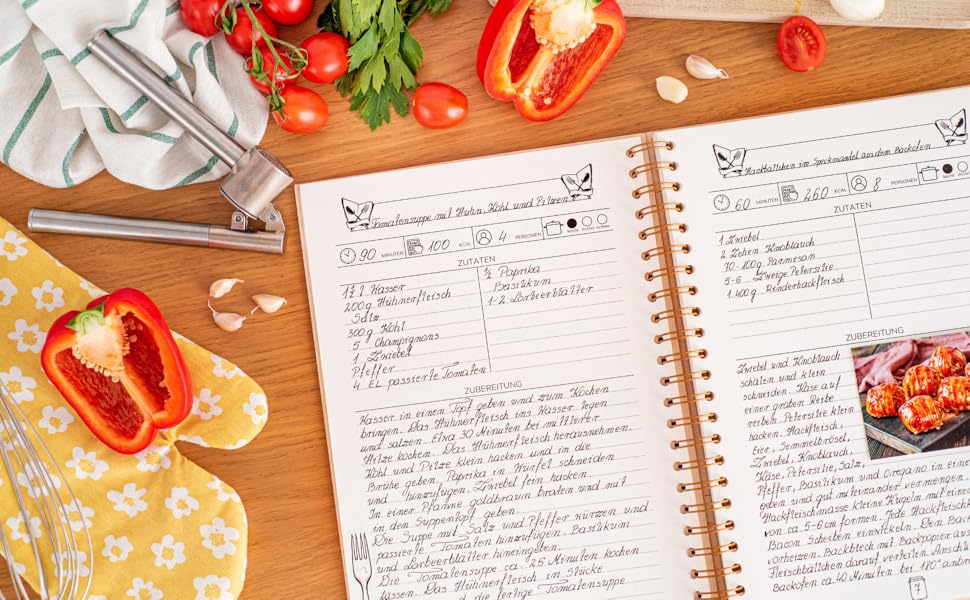 Tomatensuppe mit Huhn, Kohl und Pilzen
90 MINUTEN 100 KCAL 4 PERSONEN
ZUTATEN
1½ l Wasser
200g Hühnerfleisch
Salz
300g Kohl
5 Champignons
1 Zwiebel
Pfeffer
4 EL passierte Tomaten
½ Paprika
Basilikum
1-2 Lorbeerblätter
ZUBEREITUNG
Wasser in einem Topf geben und zum Kochen
bringen. Das Hühnerfleisch ins Wasser legen
und salzen. Etwa 30 Minuten bei mittlerer
Hitze kochen. Das Hühnerfleisch herausnehmen.
Kohl und Pilze klein hacken und in die
Brühe geben. Paprika in Würfel schneiden
und hinzufügen. Zwiebel fein hacken.
In einer Pfanne goldbraun braten und mit
in den Suppentopf geben.
Die Suppe mit Salz und Pfeffer würzen und
passierte Tomaten hinzufügen. Basilikum
und Lorbeerblätter hineingeben.
Die Tomatensuppe ca. 25 Minuten kochen
lassen. Das Hühnerfleisch in Stücke
die fertige Tomatensuppe
Hackbällchen im Speckmantel aus dem Backofen
60 MINUTEN 260 KCAL 8 PERSONEN
ZUTATEN
1 Zwiebel
2 Zehen Knoblauch
70-100g Parmesan
5-6 Zweige Petersilie
1.400g Rinderhackfleisch
ZUBEREITUNG
Zwiebel und Knoblauch
schälen und klein
schneiden. Käse auf
einer groben Reibe
reiben. Petersilie klein
hacken. Hackfleisch,
Eier, Semmelbrösel,
Zwiebel, Knoblauch,
Käse, Petersilie, Salz,
Pfeffer, Basilikum und Oregano in eine
geben und gut miteinander vermengen.
Hackfleischmasse kleine Kugeln mit einer
von ca. 5-6 cm formen. Jede Hackfleisch
Bacon Scheiben einwickeln. Den Back
vorheizen. Backblech mit Backpapier aus
Fleischbällchen darauf verteilen. Anschl
Backofen ca. 40 Minuten bei 180°
7